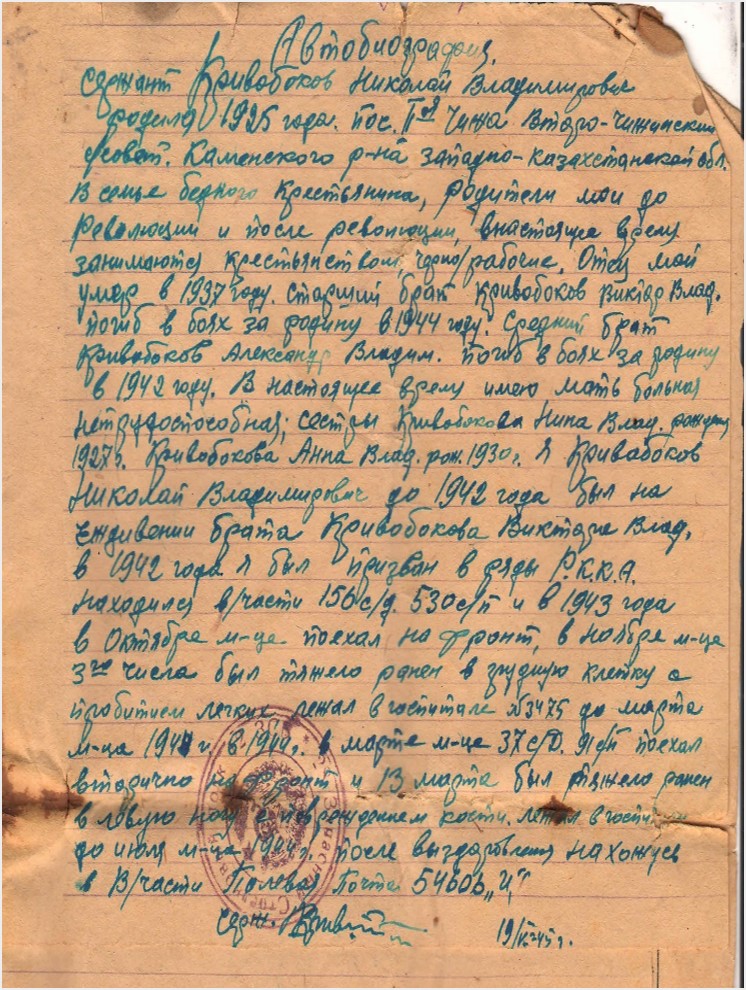 Автобиография.
сержант Кривобоков Николай Владимирович
родился 1925 года. пос. Чижа Второ-чижинский
совет. Каменского р-на западно-казахстанской обл.
В семье бедного крестьянина, родители мои до
революции и после революции, внастоящее время
занимаются крестьянством, черно/рабочие. Отец мой
умер в 1937 году. старший брат Кривобоков Виктор Влад.
погиб в боях за родину в 1944 году. Средний брат
Кривобоков Александр Владим. погиб в боях за родину
в 1942 году. В настоящее время имею мать больная
нетрудоспособная; сестры Кривобокова Нина Влад. рождения
1927 г. Кривобокова Анна Влад. рож. 1930 г. Я Кривобоков
Николай Владимирович до 1942 года был на
еждивении брата Кривобокова Виктора Влад.
в 1942 года я был призван в ряды Р.К.К.А.
находился в/части 156 с/д. 530 с/п и в 1943 года
в Октябре м-це поехал на фронт, в ноябре м-це
3го числа был тяжело ранен в грудную клетку с
пробитием легких лежал в госпитале №3475 до марта
м-ца 1944 г. в 1944 г. в марте м-це 37 с/D. поехал
вторично на фронт и 13 марта был тяжело ранен
в левую ногу с повреждением кости. лежал в госпитале
до июля м-ца 1944 г. после выздоровления нахожусь
в В/части Полевая Почта 54606 „И"
серж. Кривоб
19/VI-45 г.